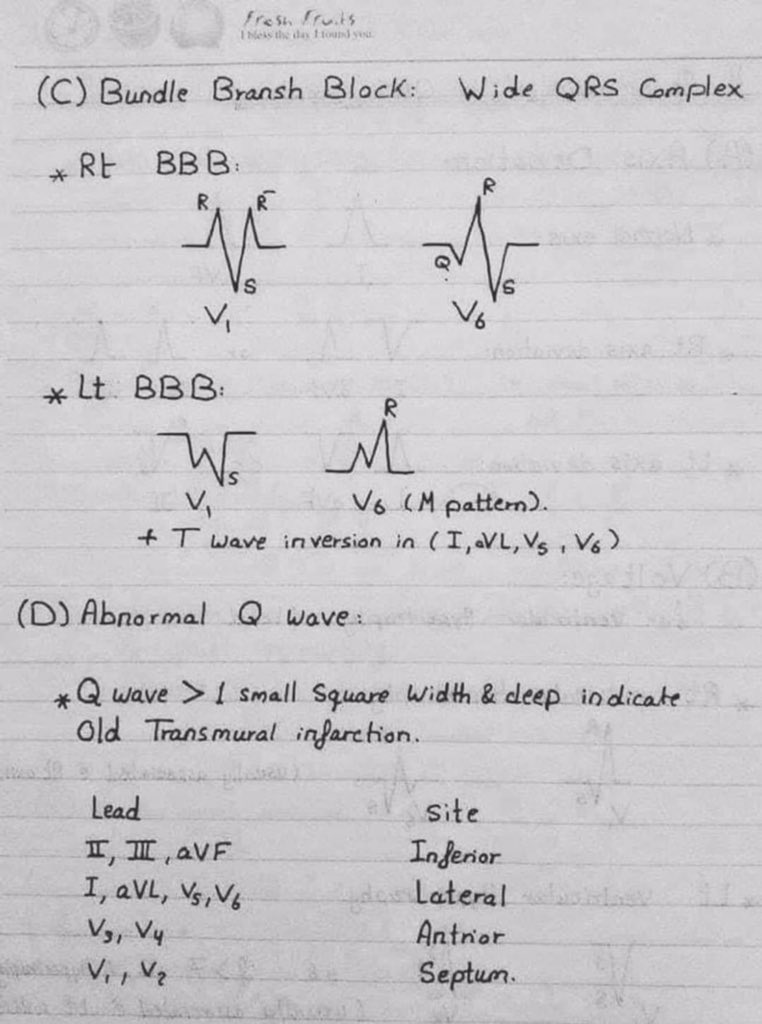 Fresh Fruits
I bless the day I found you.
(C) Bundle Bransh Block: Wide QRS Complex
* Rt BBB:
R R̄ S
V₁
Q R S
V₆
* Lt BBB:
S
V₁
R
V₆ (M pattern).
+ T wave inversion in (I, aVL, V₅, V₆)
(D) Abnormal Q wave:
* Q wave > 1 small Square width & deep indicate
Old Transmural infarction.
Lead Site
II, III, aVF Inferior
I, aVL, V₅, V₆ Lateral
V₃, V₄ Antrior
V₁, V₂ Septum.